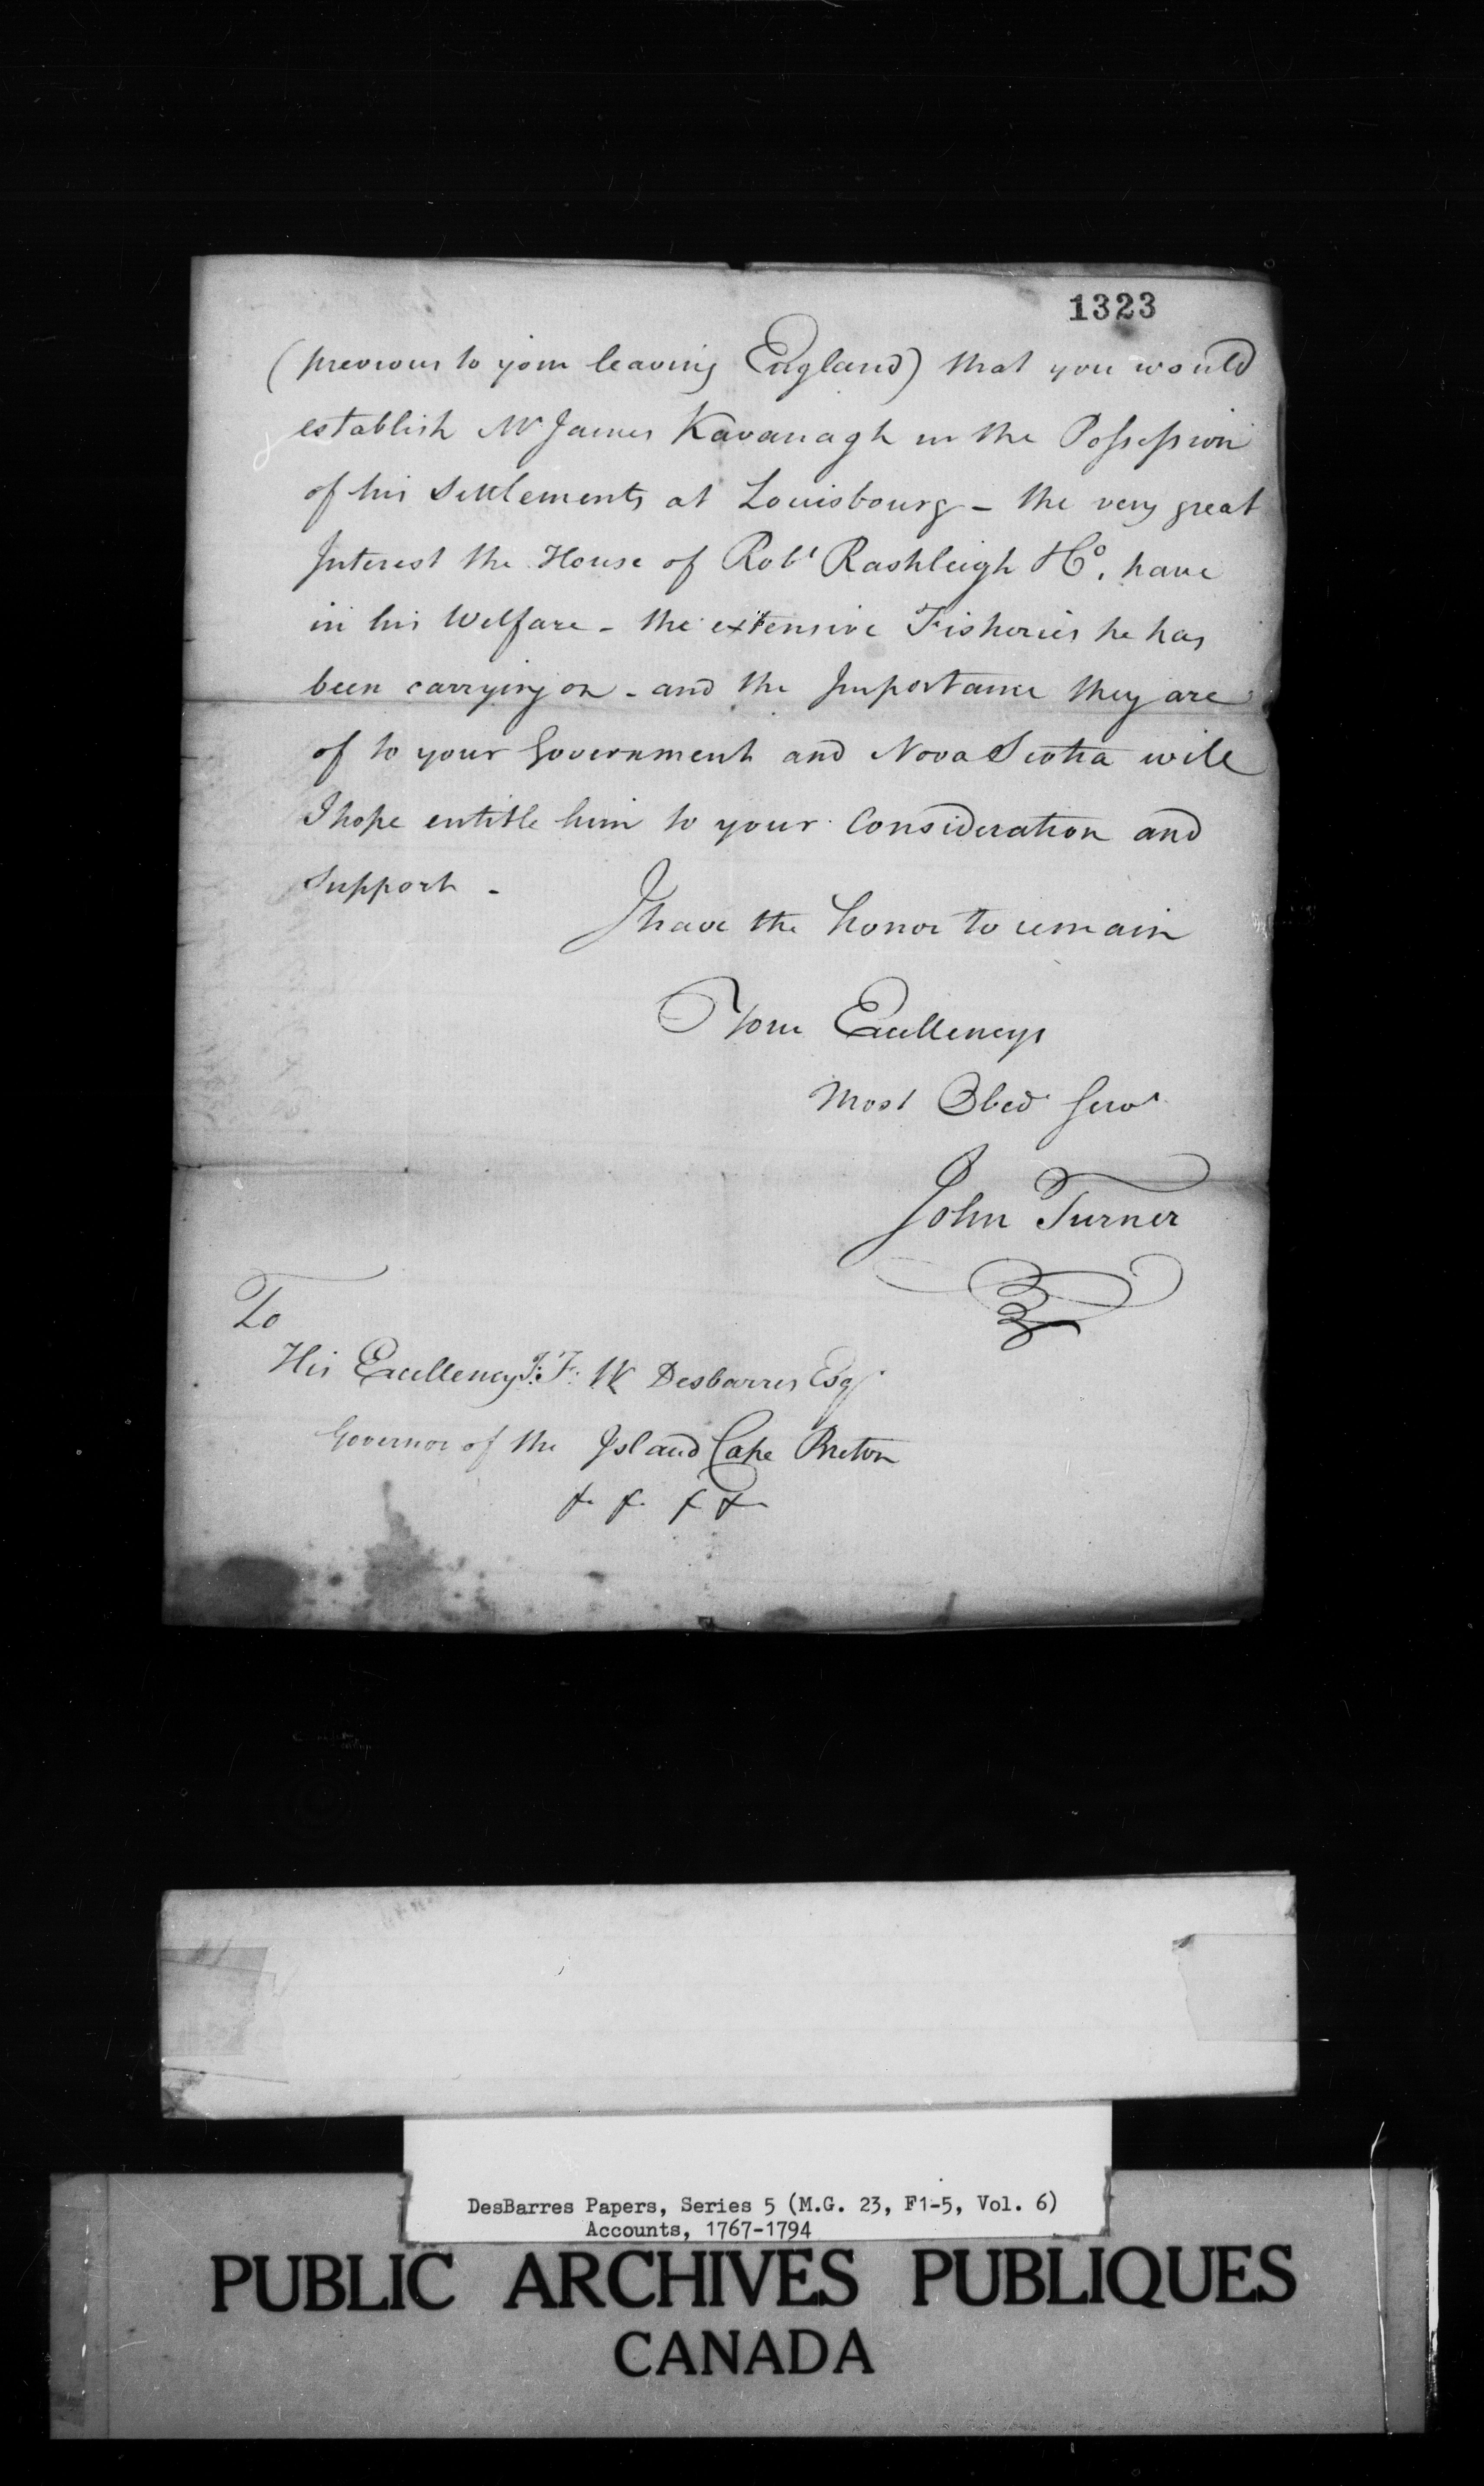 1323
(previous to your leaving England) that you would
establish Mr James Kavanagh in the Possession
of his Settlements at Louisbourg - the very great
Interest the House of Robt Rashleigh & Co. have
in his Welfare - the extensive Fisheries he has
been carrying on - and the Importance they are
of to your Government and Nova Scotia will
I hope entitle him to your Consideration and
Support -
I have the honor to remain
Your Excellencys
Most Obed Servt
John Turner
To
His Excellency J: F: W Desbarres Esqr
Governor of the Island Cape Breton
&. &. & &
DesBarres Papers, Series 5 (M.G. 23, F1-5, Vol. 6)
Accounts, 1767-1794
PUBLIC ARCHIVES PUBLIQUES
CANADA